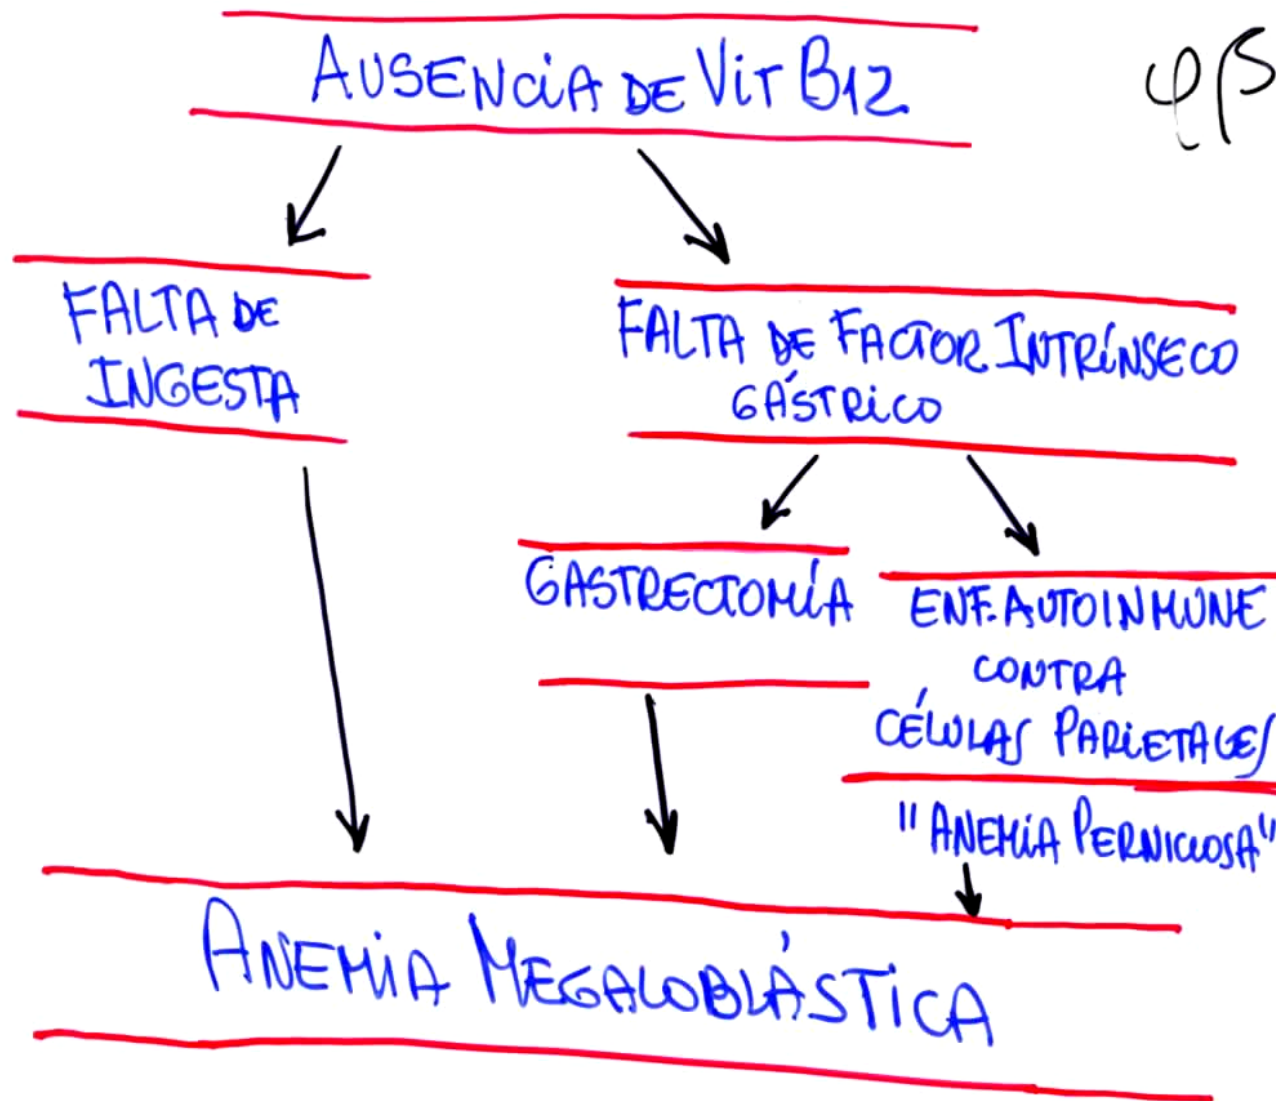 AUSENCIA DE VIT B12
φβ
FALTA DE
INGESTA
FALTA DE FACTOR INTRÍNSECO
GÁSTRICO
GASTRECTOMÍA
ENF. AUTOINMUNE
CONTRA
CÉLULAS PARIETALES
"ANEMIA PERNICIOSA"
ANEMIA MEGALOBLÁSTICA